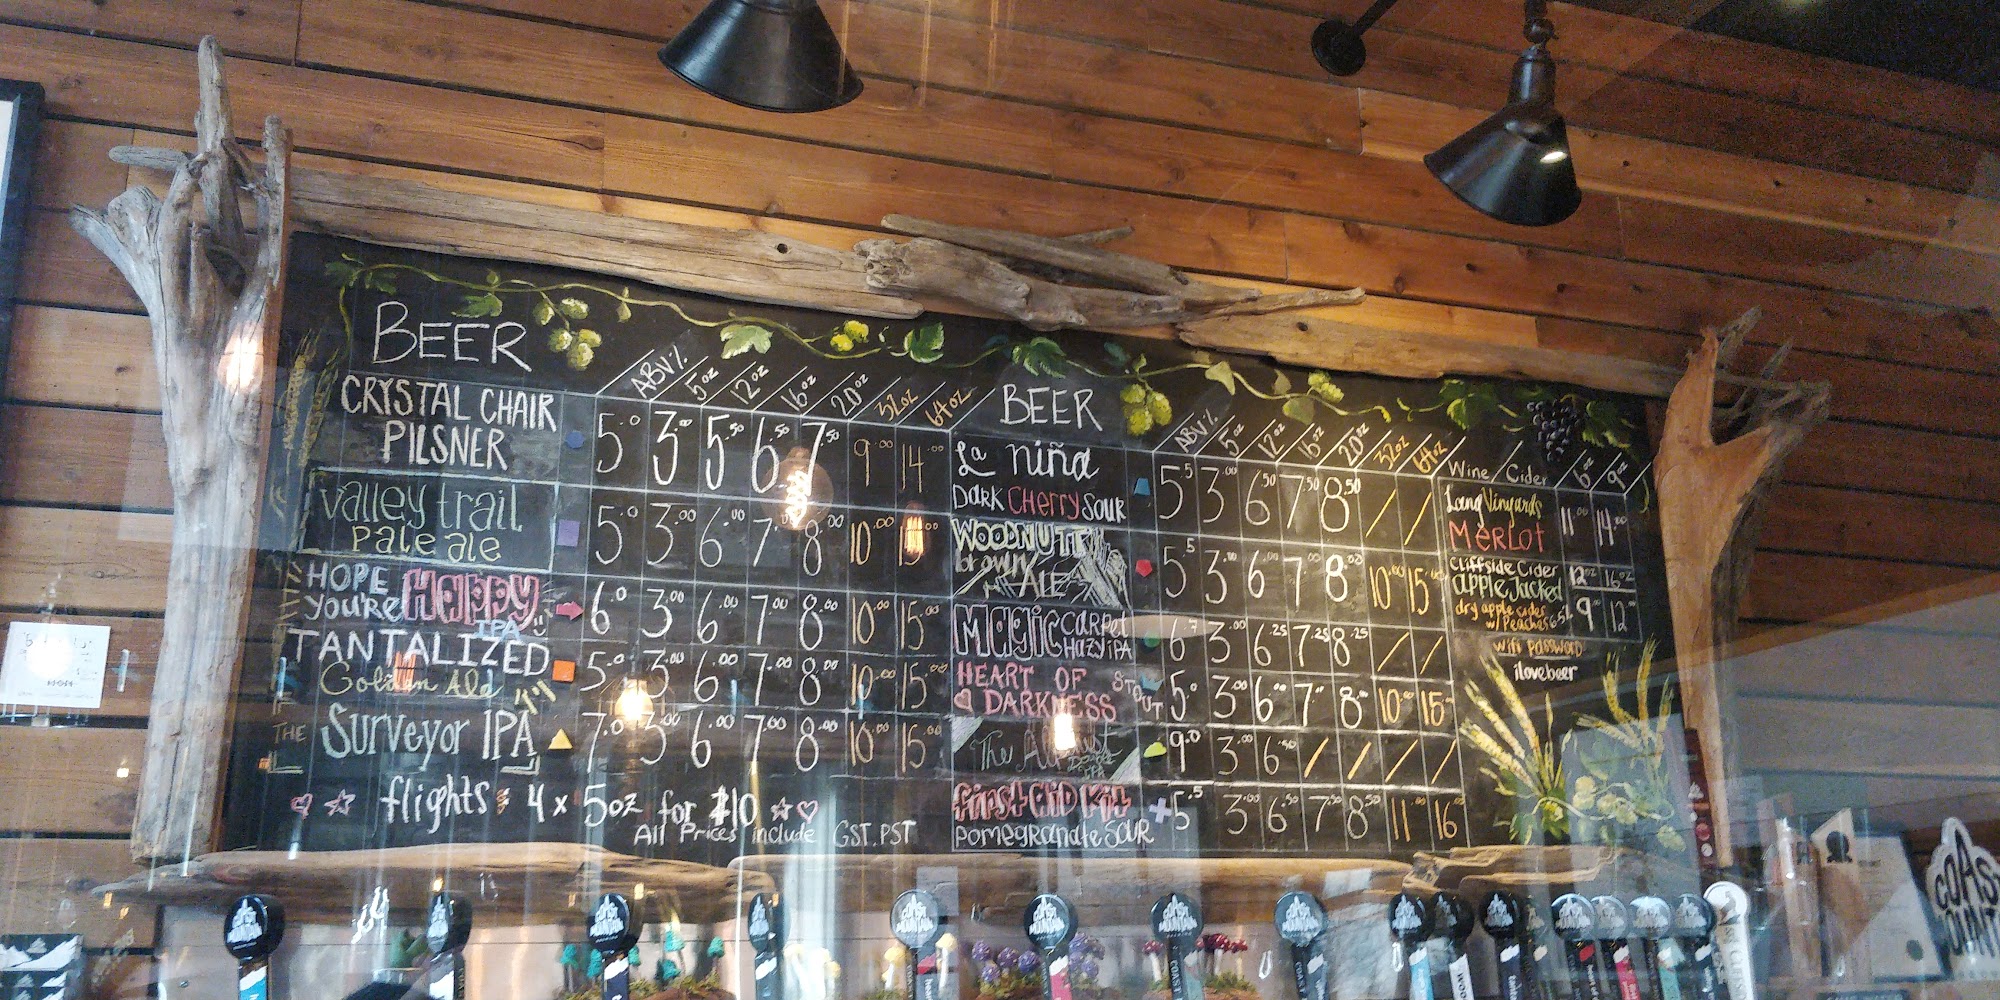 BEER ABV% 5oz 12oz 16oz 20oz 32oz 64oz
CRYSTAL CHAIR
PILSNER
5.0 3.00 5.50 6.50 7.50 9.00 14.00
Valley trail
Pale ale
5.0 3.00 6.00 7 8.00 10.00 15.00
HOPE
you're Happy
IPA
6.0 3.00 6.00 7.00 8.00 10.00 15.00
TANTALIZED
Golden Ale
5.0 3.00 6.00 7.00 8.00 10.00 15.00
THE Surveyor IPA
7.0 3.00 6.00 7.00 8.00 10.00 15.00
flights: 4 x 5oz for $10
All Prices include GST.PST
BEER ABV% 5oz 12oz 16oz 20oz 32oz 64oz
La niña
DARK CHERRY SOUR
5.5 3.00 6.50 7.50 8.50 / /
WOODNUTT
brown
ALE
5.5 3.00 6.00 7.00 8.00 10.00 15.00
MAGIC Carpet
Hazy IPA
6.7 3.00 6.25 7.25 8.25 / /
HEART OF
DARKNESS STOUT
5.0 3.00 6.00 7.00 8.00 10.00 15.00
The
9.0 3.00 6.50 / / / /
First Aid Kit
pomegranate SOUR
5.5 3.00 6.50 7.50 8.50 11 16
Wine / Cider 6oz 9oz
Lang Vineyards
Merlot
11.00 14.00
Cliffside Cider 12oz 16oz
apple Jacked
dry apple cider
w/ Peaches 6.5%
9.00 12.00
wifi password
ilovebeer
COAST
MOUNTAIN